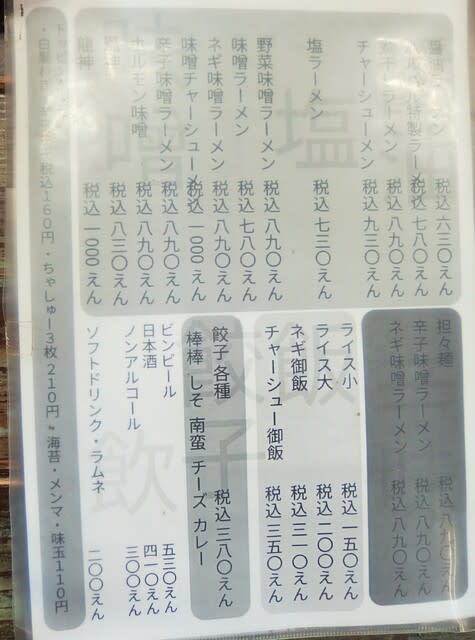 ラーメン 税込 六三〇えん
特製ラーメン 税込 七八〇えん
ラーメン 税込 八九〇えん
チャーシューメン 税込 九三〇えん
塩ラーメン 税込 七三〇えん
野菜味噌ラーメン 税込 八九〇えん
味噌ラーメン 税込 七八〇えん
ネギ味噌ラーメン 税込 八九〇えん
味噌チャーシューメン 税込 一〇〇〇えん
辛子味噌ラーメン 税込 八九〇えん
ホルモン味噌 税込 八九〇えん
税込 八三〇えん
龍神 税込 一〇〇〇えん
担々麺 税込 八九〇えん
辛子味噌ラーメン 税込 八九〇えん
ネギ味噌ラーメン 税込 八九〇えん
ライス小 税込 一五〇えん
ライス大 税込 二〇〇えん
ネギ御飯 税込 三一〇えん
チャーシュー御飯 税込 三五〇えん
餃子各種 税込 三八〇えん
棒棒 しそ 南蛮 チーズ カレー
ビンビール 五三〇えん
日本酒 四一〇えん
ノンアルコール 三〇〇えん
ソフトドリンク・ラムネ 二〇〇えん
税込160円・ちゃしゅー3枚210円・海苔・メンマ・味玉110円
塩
噌
飯
餃子
飲